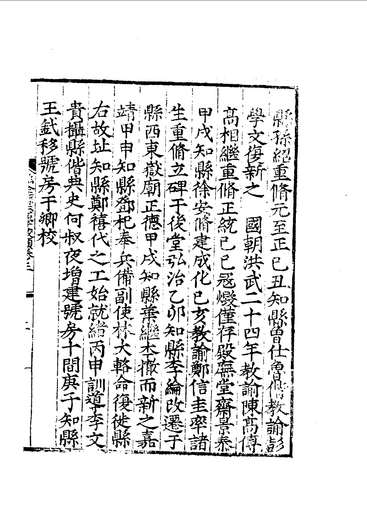 縣孫紹重脩元至正己丑知縣曾仕魯僧教諭彭
學文復新之　國朝洪武二十四年教諭陳高傅
高相繼重脩正統己巳冦燬僅存殿廡堂齋景泰
甲戌知縣徐安脩建成化己亥教諭鄭信圭率諸
生重脩立碑于後堂弘治乙卯知縣李綸改遷于
縣西東嶽廟正德甲戌知縣葉繼本撤而新之嘉
靖甲申知縣鄧杞奉兵備副使林大輅命復徙縣
右故址知縣鄭禧代之工始就緒丙申訓導李文
貴攝縣偕典史何叔夜增建號房十間庚子知縣
王鉞移號房于鄉校